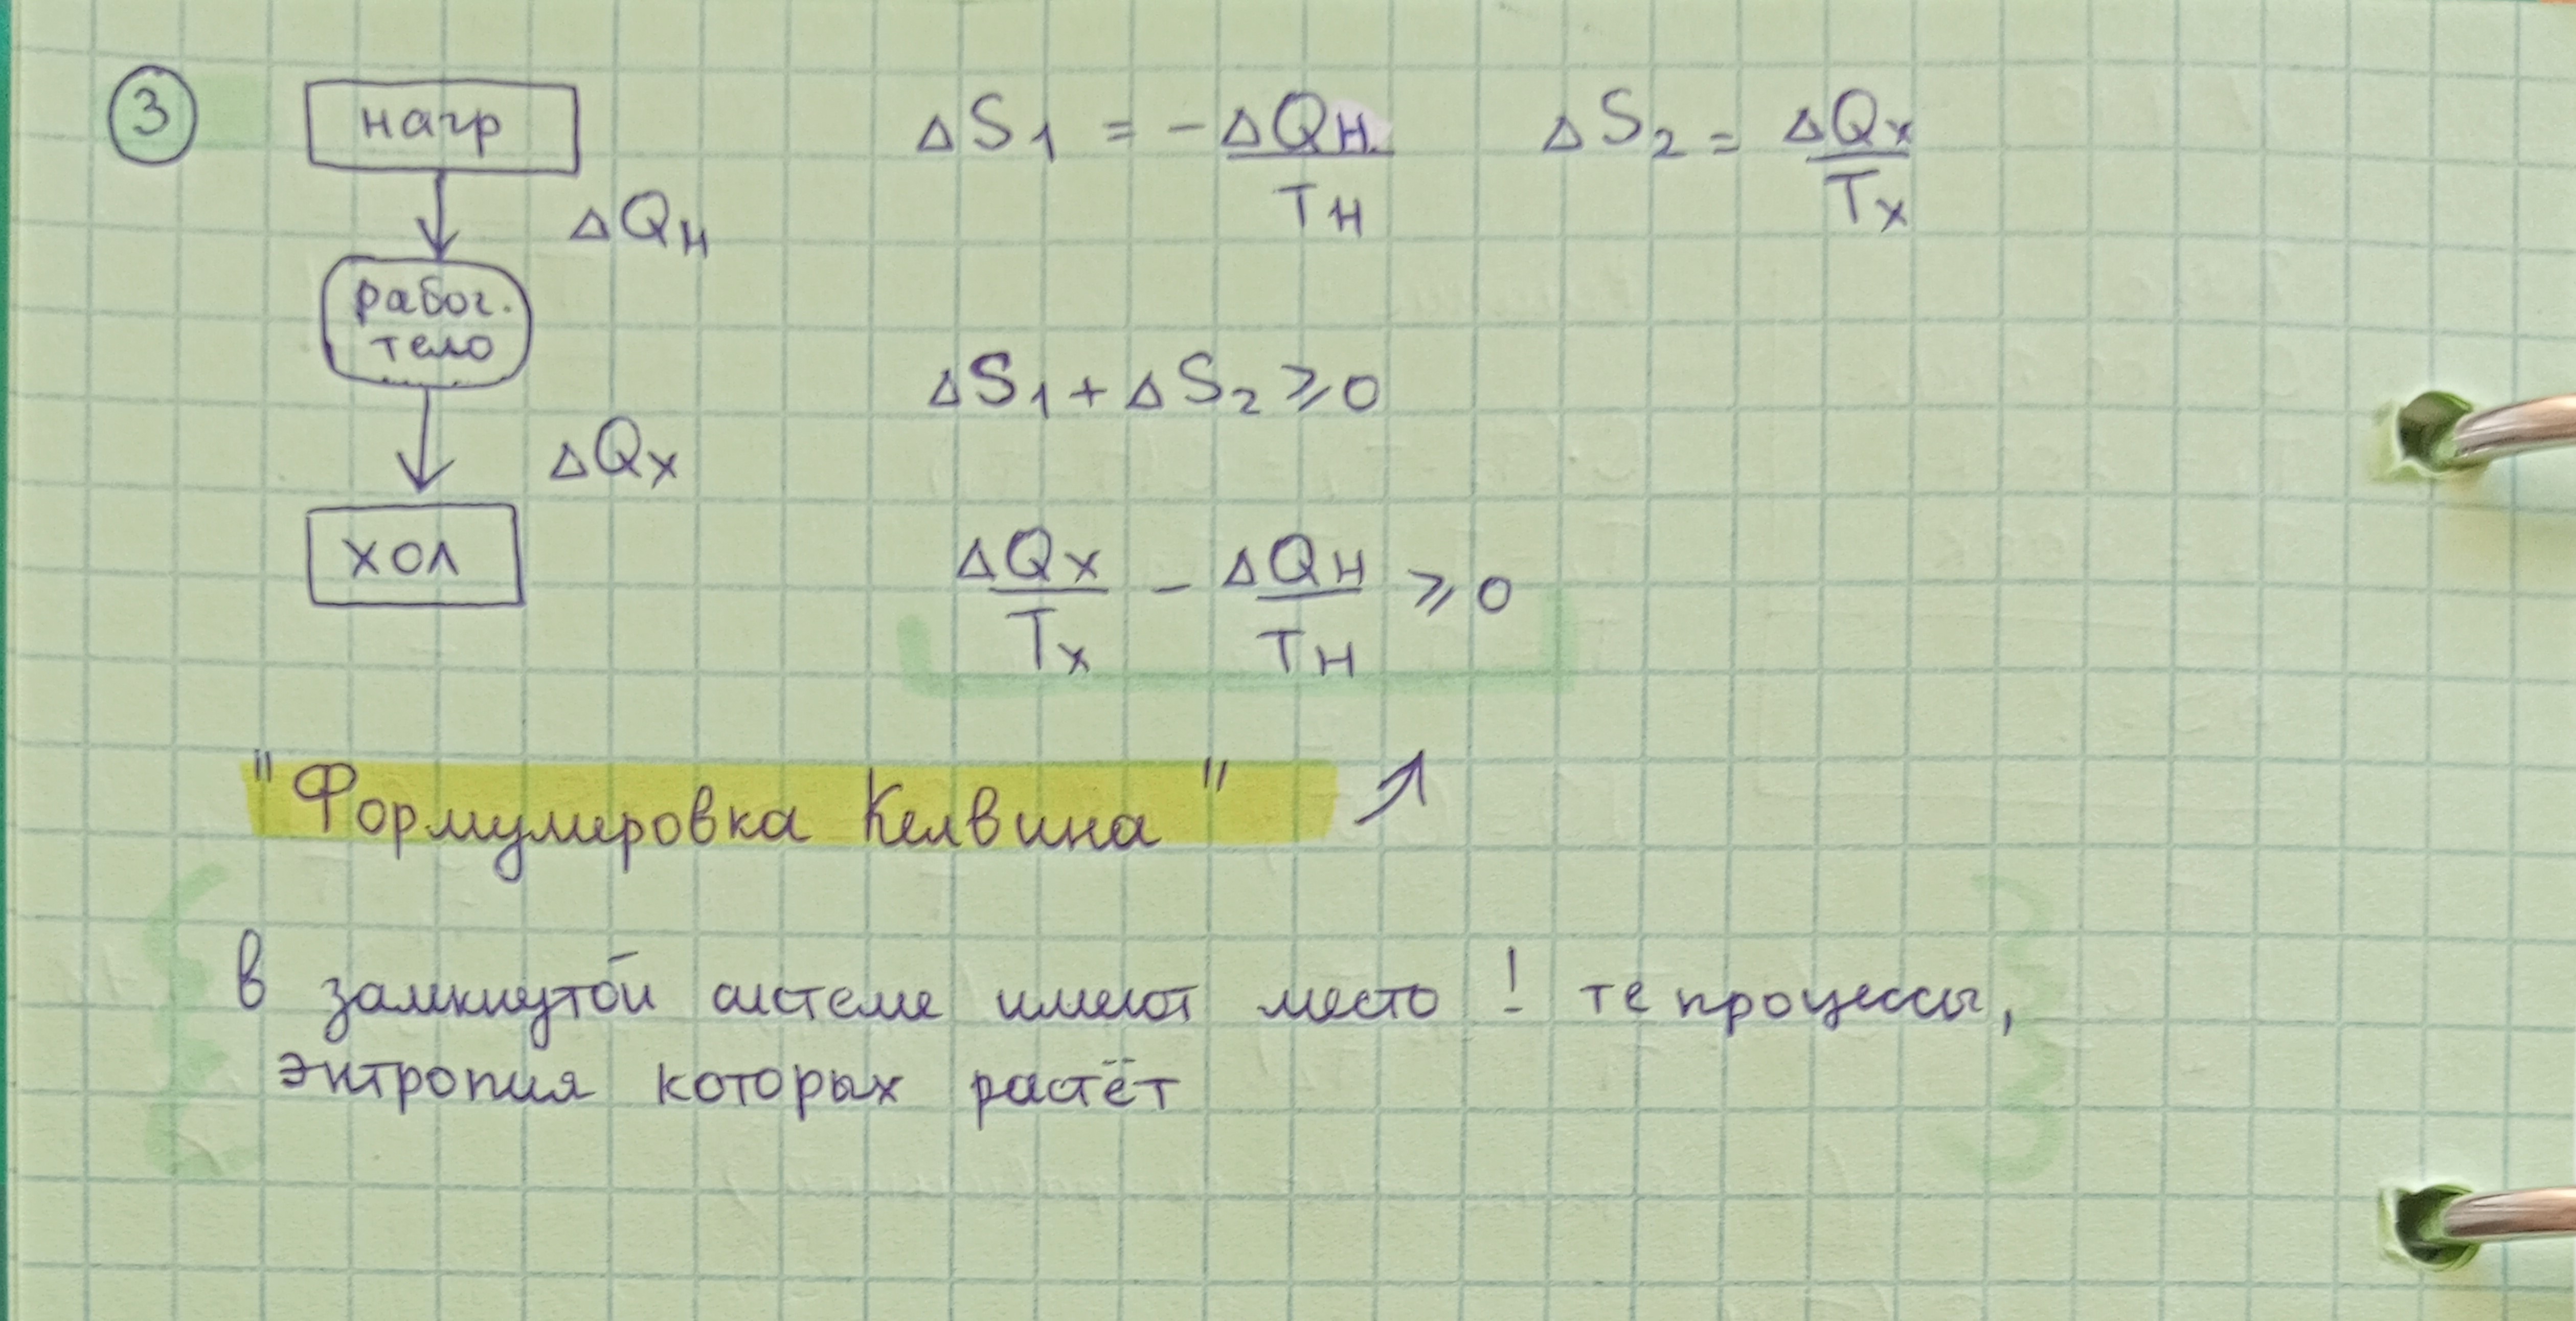 ③
нагр
ΔQн
рабоч.
тело
ΔQх
хол
ΔS₁ = -ΔQн/Tн ΔS₂ = ΔQх/Tх
ΔS₁ + ΔS₂ ⩾ 0
ΔQх/Tх - ΔQн/Tн ⩾ 0
"Формулировка Келвина" ↗
В замкнутой системе имеют место ! те процессы,
энтропия которых растёт